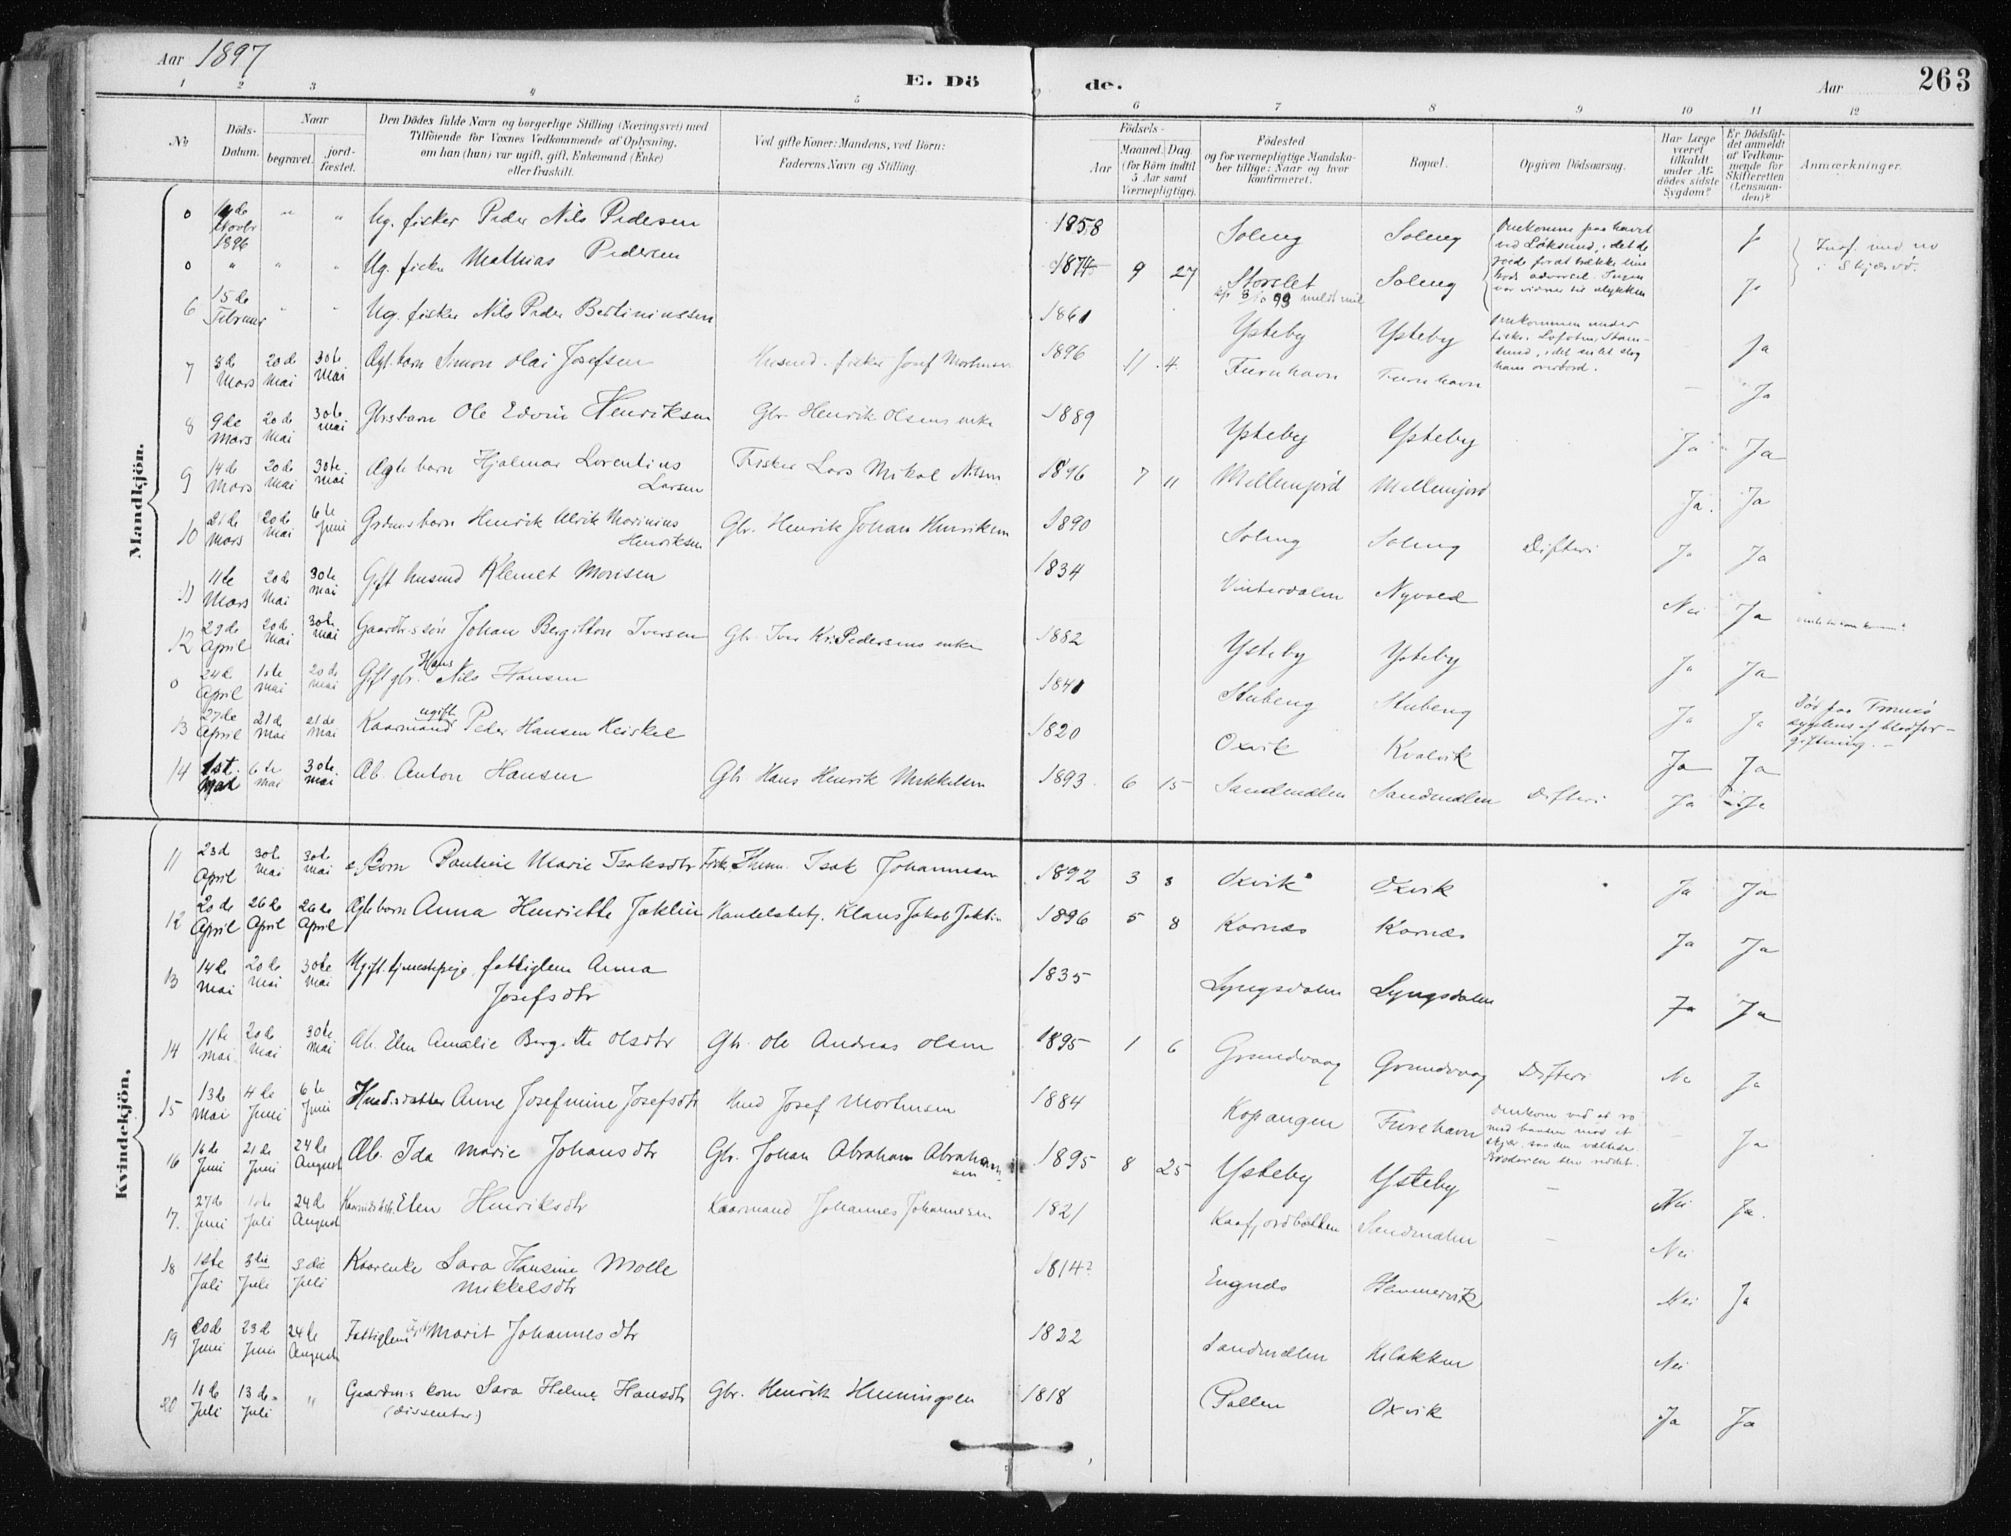 Aar 1897
E. Dö de.
Aar
263
1 2 3 4 5 6 7 8 9 10 11 12
No
Döds-Datum.
Naar
begravet.
jord-fæstet.
Den Dödes fulde Navn og borgerlige Stilling (Næringsvei) med
Tilföiende for Voxnes Vedkommende af Oplysning,
om han (hun) var ugift, gift, Enkemand (Enke)
eller fraskilt.
Ved gifte Koner: Mandens, ved Börn:
Faderens Navn og Stilling.
Födsels-
Aar
Maaned. Dag
(for Börn indtil
5 Aar samt
Værnepligtige).
Födested
og for værnepligtige Mandska-
ber tillige: Naar og hvor
konfirmeret.
Bopæl.
Opgiven Dödsaarsag.
Har Læge
været
tilkaldt
under Af-
dödes sidste
Sygdom?
Er Dödsfal-
det anmeldt
af Vedkom-
mende for
Skifteretten
(Lensman-
den)?
Anmærkninger.
Mandkjön.
0 Novbr 1896 " " Ug. fisker Peder Nils Pedersen 1858 Soleng Soleng Omkomne paa havet ved Löksund, Ja
0 " " " Ug. fisker Mathias Pedersen 1874 9 27 Storslet Soleng Ja
6 15de Februar " " Ug. fisker Nils Peder Bertiniussen 1861 Ysteby Ysteby Omkommen under fiske i Lofoten, Ja
7 3de Mars 20de Mai 30te Mai Ægt. barn Simon Olai Josefsen Husmd. fisker Josef Mortensen 1896 11 4 Furuhavn Furuhavn Ja
8 9de Mars 20de Mai 30te Mai Gbrs barn Ole Edvin Henriksen Gbr. Henrik Olsens enke 1889 Ysteby Ysteby Ja Ja
9 14de Mars 20de Mai 30te Mai Ægte barn Hjalmar Lorentius Larsen Fisker Lars Mikal Nilsen 1896 7 11 Mellemjord Mellemjord Ja Ja
10 21de Mars 20de Mai 6te Juni Grdms barn Henrik Ulrik Marinius Henriksen Gbr. Henrik Johan Henriksen 1890 Soleng Soleng Difteri Ja Ja
11 11te Mars 20de Mai 30te Mai Gift husmd Klemet Monsen 1834 Vinterdalen Nyvold Nei Ja
12 29de April 20de Mai 30te Mai Gaardbrs sön Johan Bergitton Iversen Gbr. Iver Kr. Pedersens enke 1882 Ysteby Ysteby Ja Ja
0 24de April 10te Mai 20de Mai Gift gbr. Hans Nils Hansen 1841 Stubeng Stubeng Ja Ja Död paa Tromsö sygehus af blodforgiftning.
13 27de April 21de Mai 21de Mai Kaarmand ugift Peder Hansen Heiskel 1820 Oxvik Kvalvik Ja Ja
14 1st. Mai 6te Mai 30te Mai Æb. Anton Hansen Gbr. Hans Henrik Mikkelsen 1893 6 15 Sandmælen Sandmælen Difteri Ja Ja
Kvindekjön.
11 23d April 30te Mai 30te Mai Æ. Barn Pauline Marie Isaksdtr Isak Johannesen 1892 3 3 Oxvik Oxvik Ja Ja
12 20de April 26de April 26de April Ægte barn Anna Henriette Jaklin Handelsbetj. Klaus Jakob Jaklin 1896 5 8 Karnæs Karnæs Ja Ja
13 14de Mai 20de Mai 30te Mai Ugift tjenestepige, fattiglem Anna Josefsdtr 1835 Lyngsdalen Lyngsdalen Ja Ja
14 11te Mai 20de Mai 30te Mai Æb. Elen Amalie Bergitte Olsdtr Gbr. Ole Andreas Olsen 1895 1 6 Grundvaag Grundvaag Difteri Nei Ja
15 13de Mai 4de Juni 6te Juni Husmds datter Anne Josefmine Josefsdtr Husmd Josef Mortensen 1884 Kopangen Furuhavn Omkom ved at ro med baaden mod et skjær, saa den væltede. Broderen blev reddet. Ja
16 16de Juni 21de Juni 24de August Æb. Ida Marie Johansdtr Gbr. Johan Abraham Abrahamsen 1895 8 25 Ysteby Ysteby Nei Ja
17. 27de Juni Juli 24de August Elen Henriksdtr Kaarmand Johannes Johannesen 1821 Kaafjordbotten Sandmælen Nei
18 1ste Juli 3die Juli 3die Juli Kaarenke Sara Hansine Moelle Mikkelsdtr 1814? Engnæs Hammervik Nei Ja
19 20de Juni 23de Juni 24de August Fattiglem Marit Johannesdtr 1822 Sandmælen Kilbakken Nei
20 10de Juli 13de Juli " Gaardms kone Sara Helene Hansdtr (dissenter) Gbr. Henrik Henningsen 1818 Pollen Oxvik Ja Ja